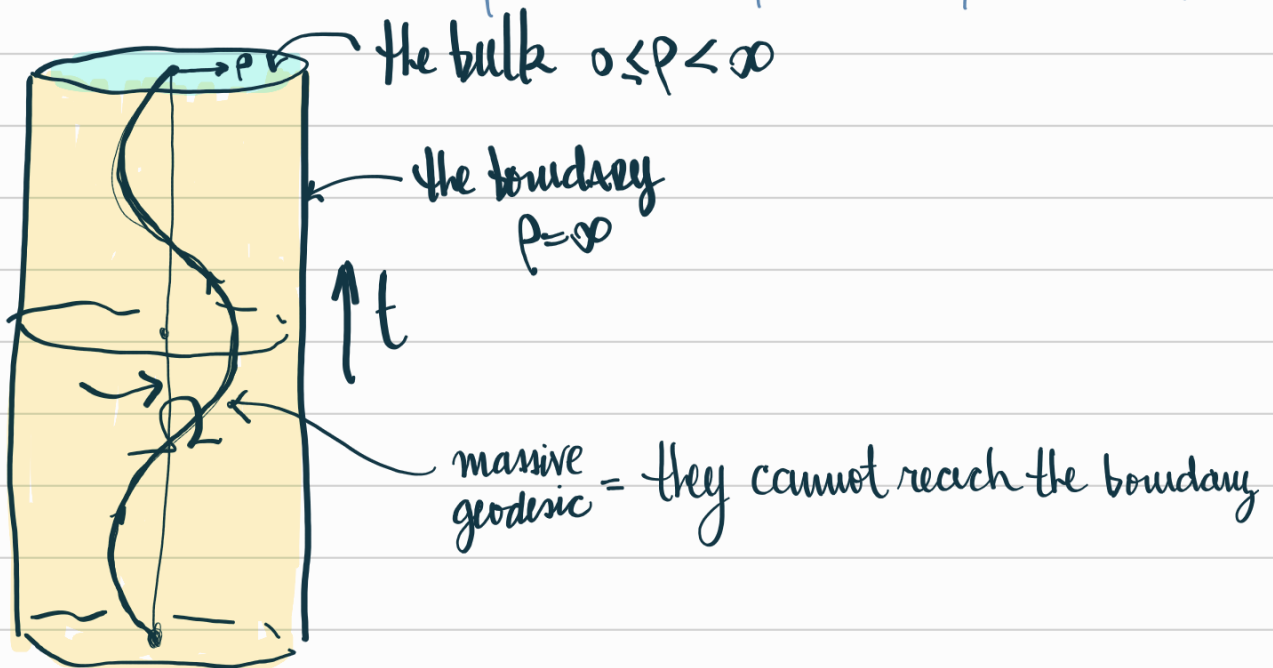 ρ the bulk 0 ≤ ρ < ∞
the boundary
ρ=∞
t
massive
geodesic = they cannot reach the boundary